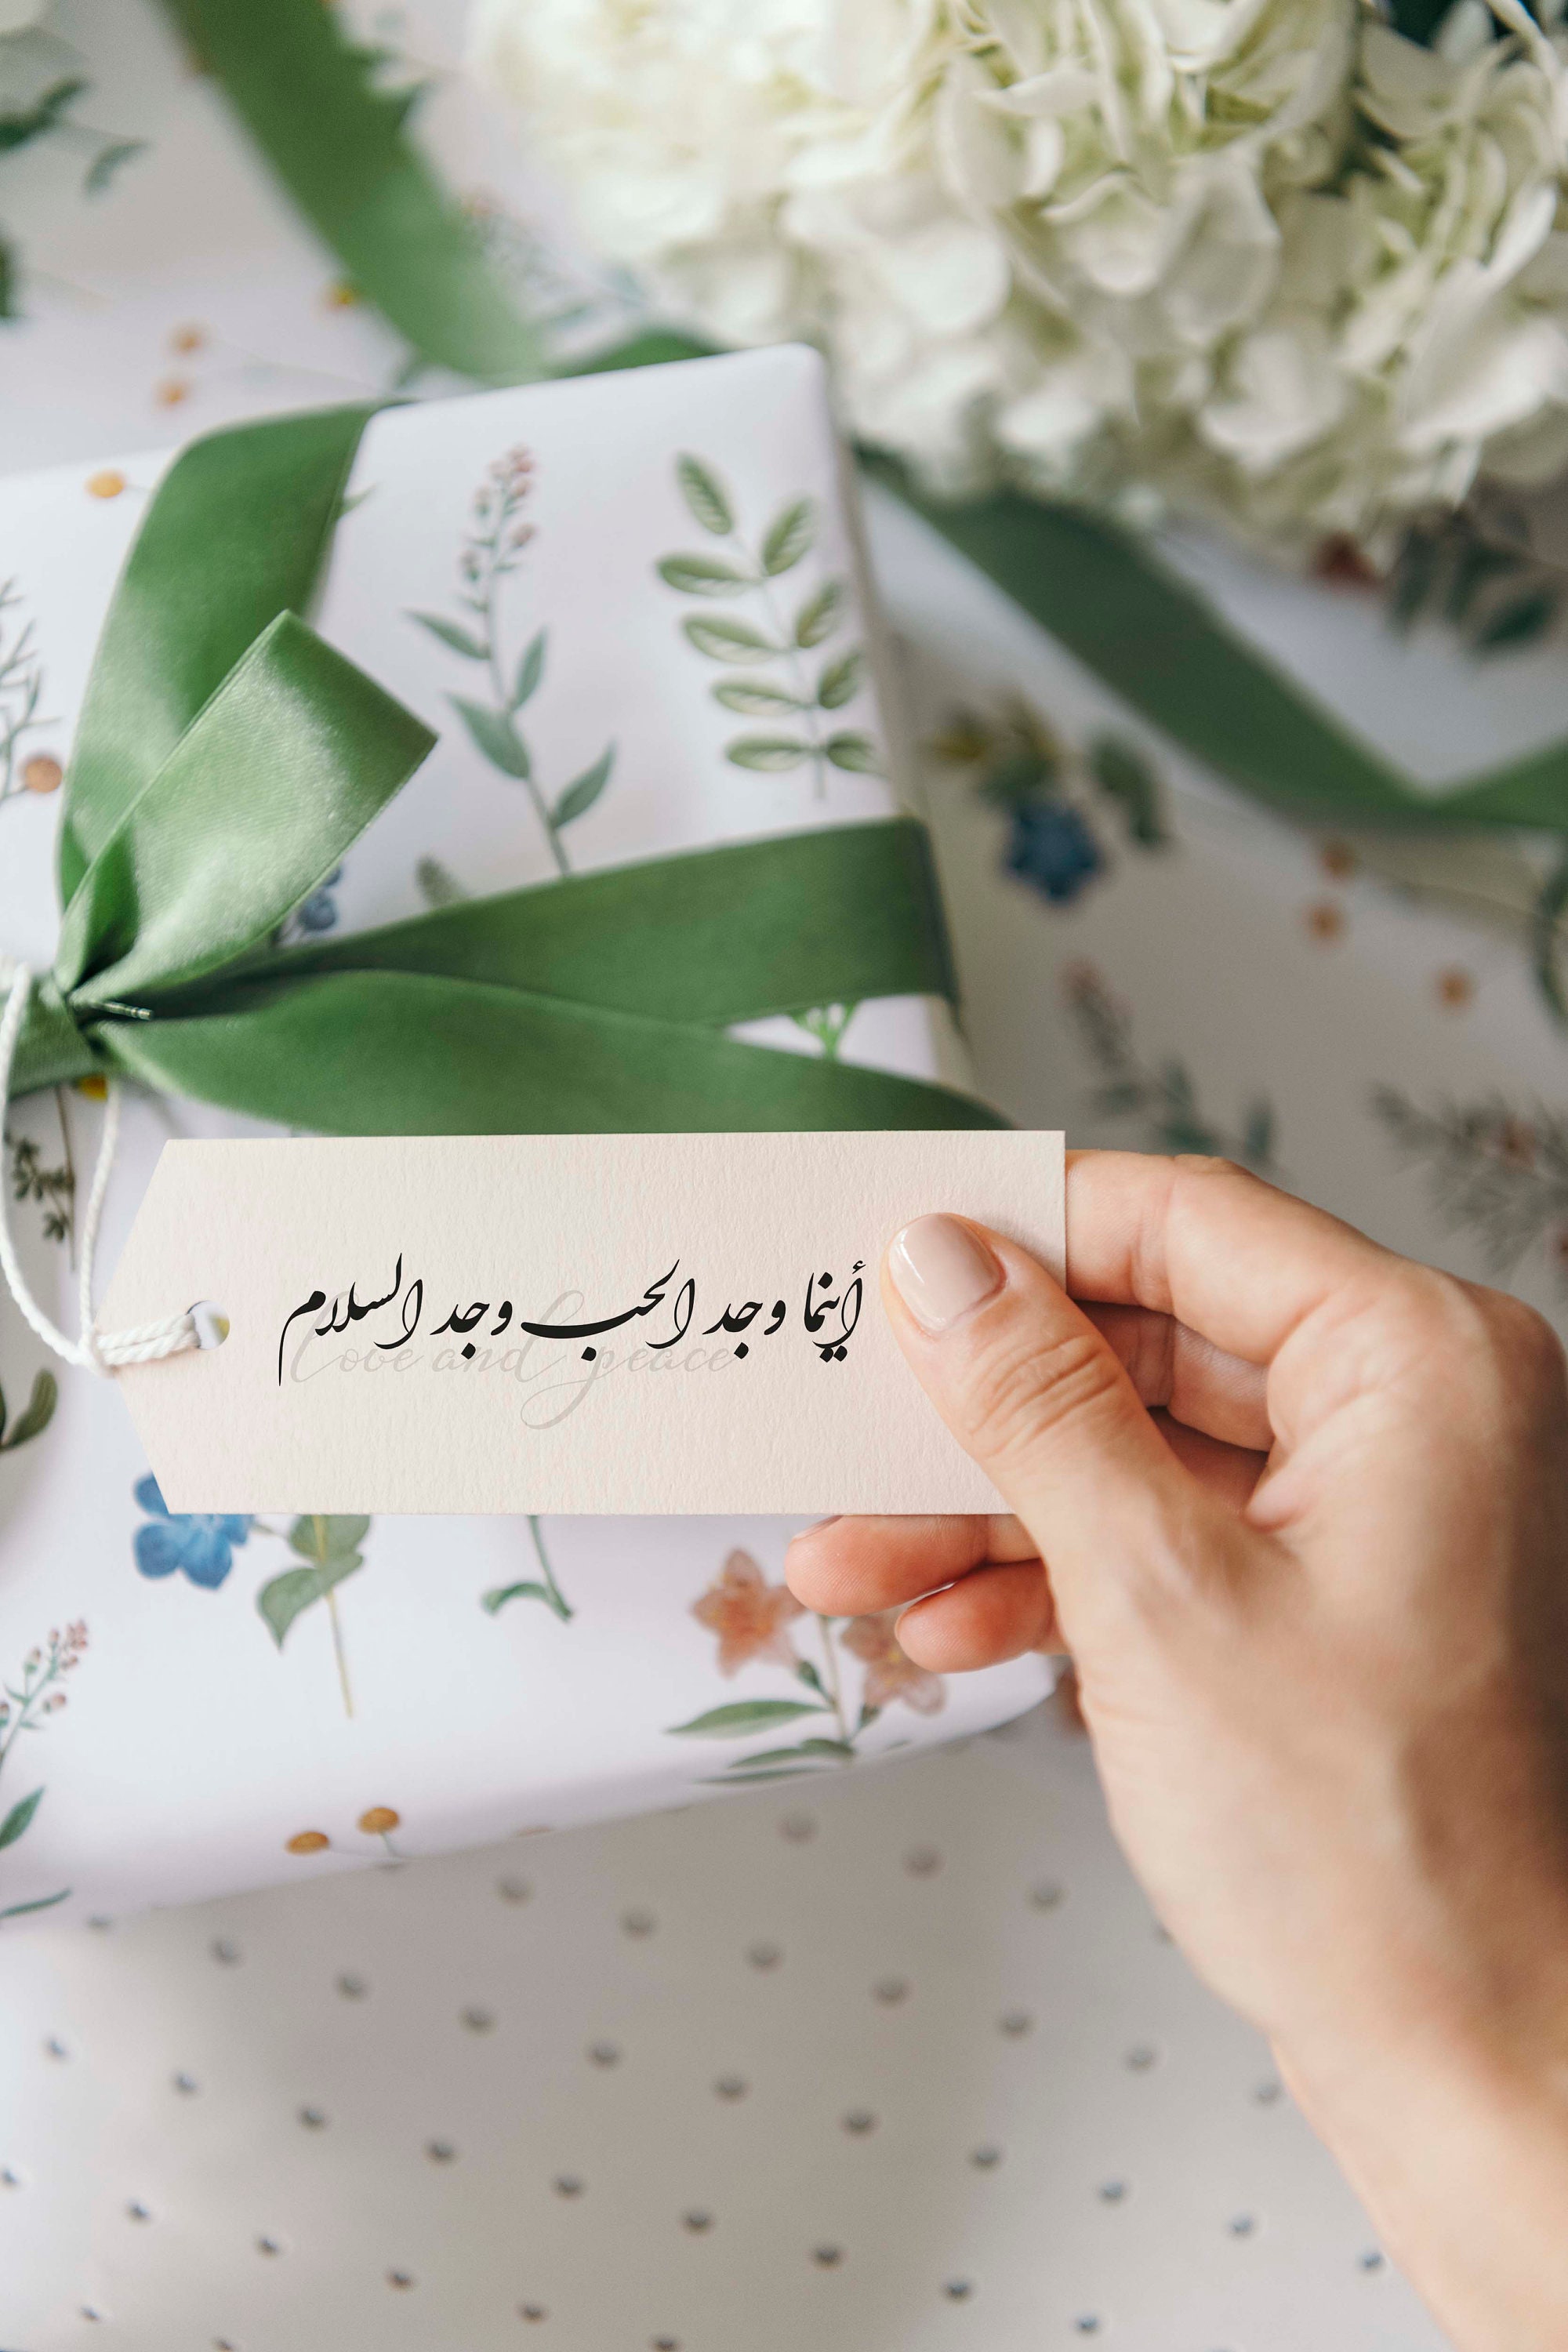 أينما وجد الحب وجد السلام
Love and peace